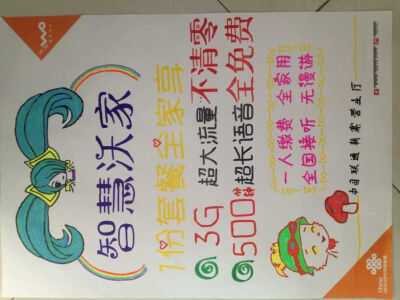 智慧沃家
1份套餐全家享
3G 超大流量不清零
500分钟超长语音全免费
一人缴费 全家用
全国接听 无漫游
中国联通 营业厅
China
unicom中国联通